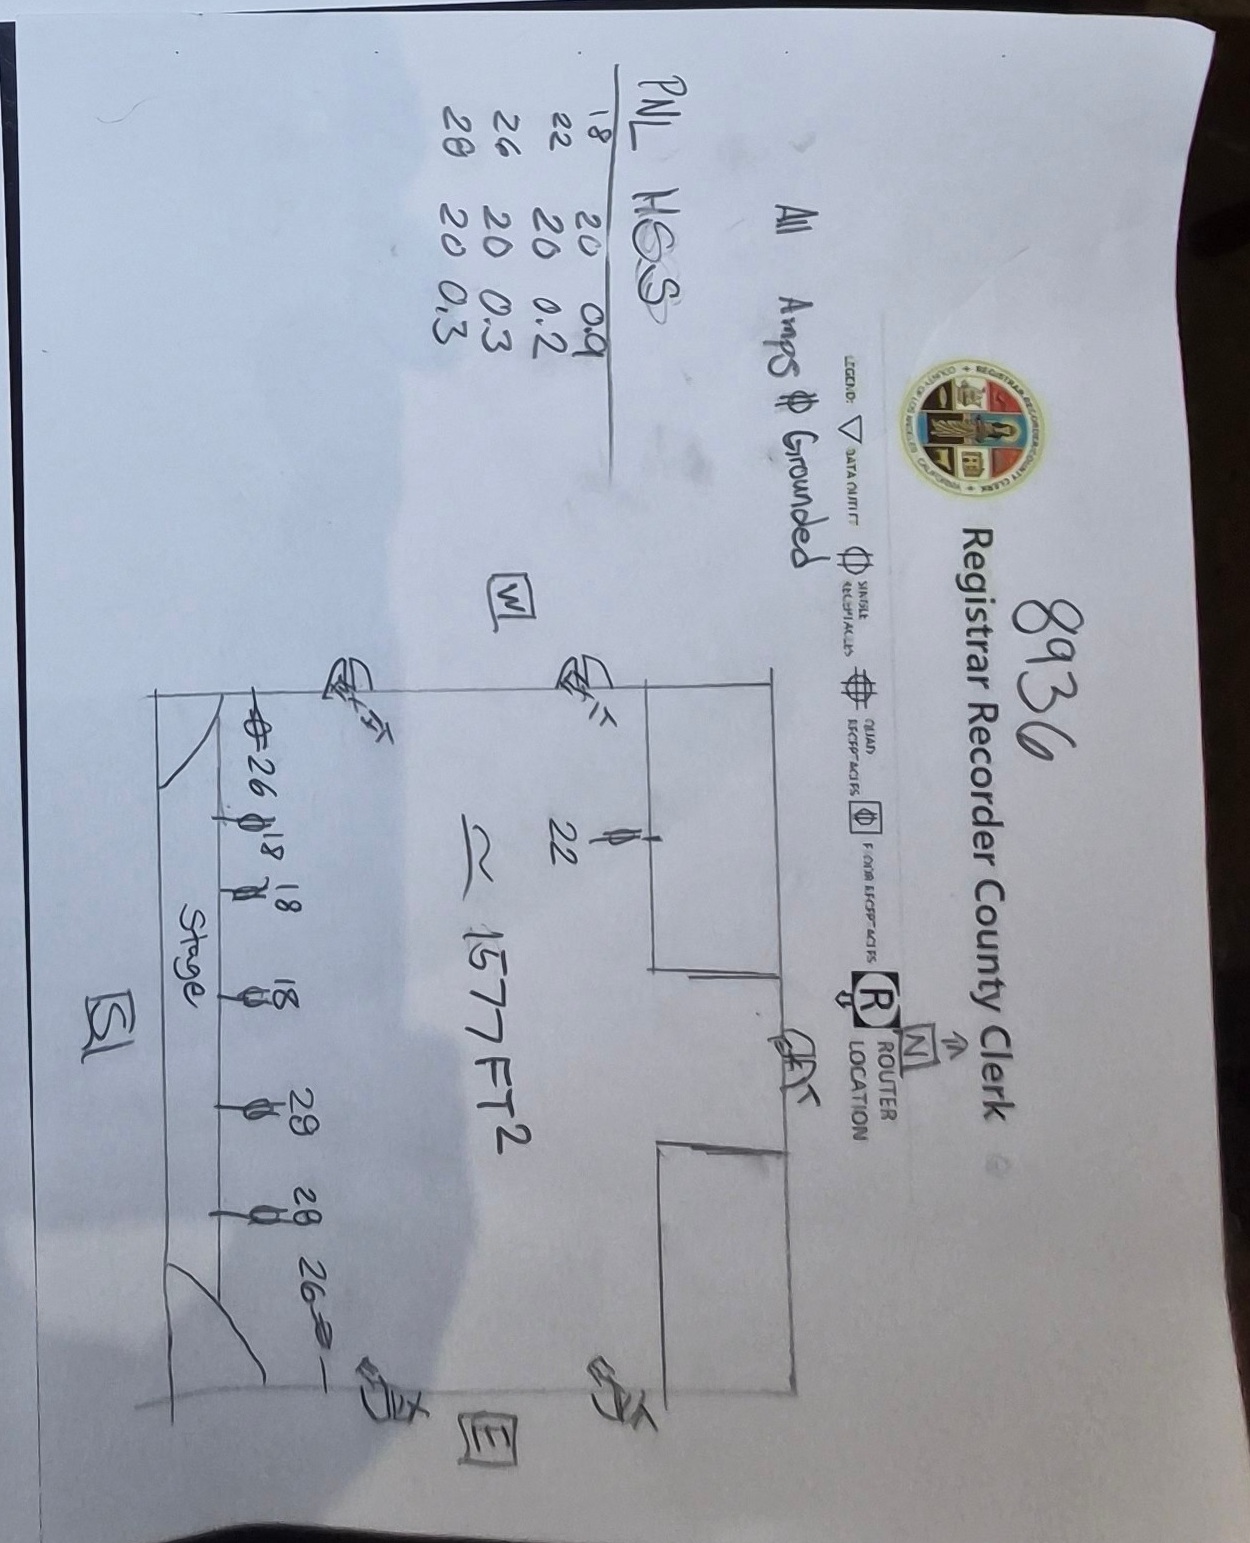 8936
Registrar Recorder County Clerk
LEGEND: DATA OUTLET SINGLE RECEPTACLES QUAD RECEPTACLES FLOOR RECEPTACLES R ROUTER LOCATION
N
All Amps Grounded
PNL HSS
18 20 0.9
22 20 0.2
26 20 0.3
28 20 0.3
W
22
≃ 1577 FT2
E
26 18 18 18 28 28 26
Stage
S